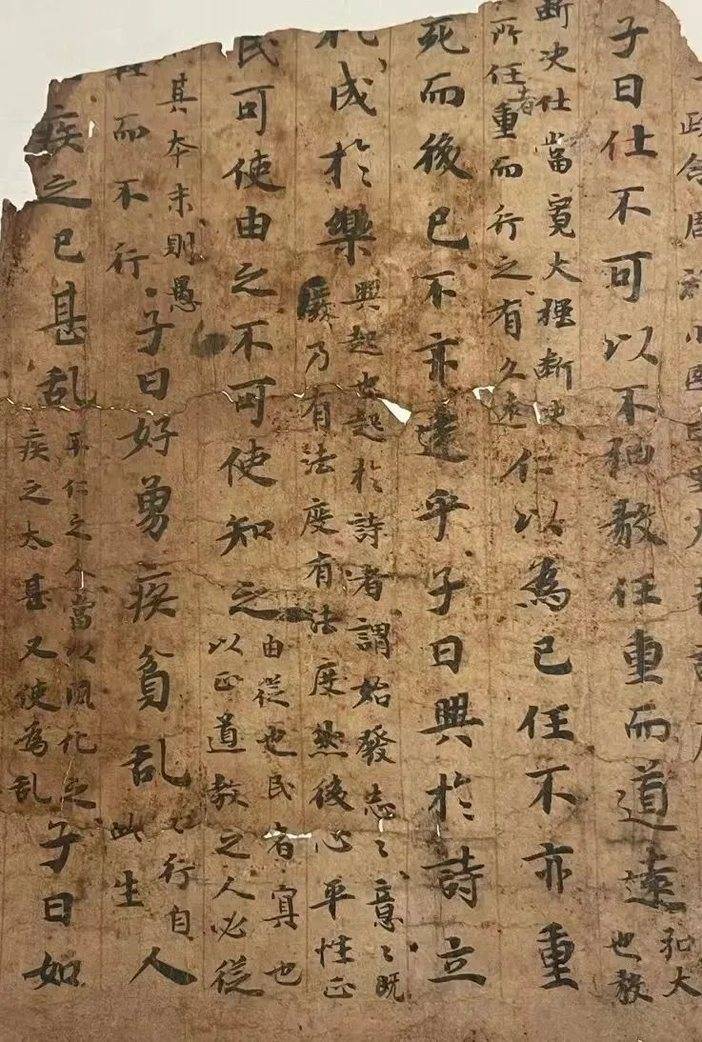 政令周
子曰仕不可以不弘毅任重而道遠
弘大
也毅
断决仕當寬大強断决
所任者重而行之有久遠
仁以為已任不亦重
死而後已不亦遠乎子曰興於詩立
礼成於樂
興起也起於詩者謂始發志〻意〻既
厥乃有法度有法度然後心平性正
民可使由之不可使知之
由從也民者冥也
以正道教之人必從
其本末則愚
而不行
子曰好勇疾貧乱
行自
此生
人
疾之已甚乱
不仁之人當以風化之
疾之太甚又使為乱
子曰如